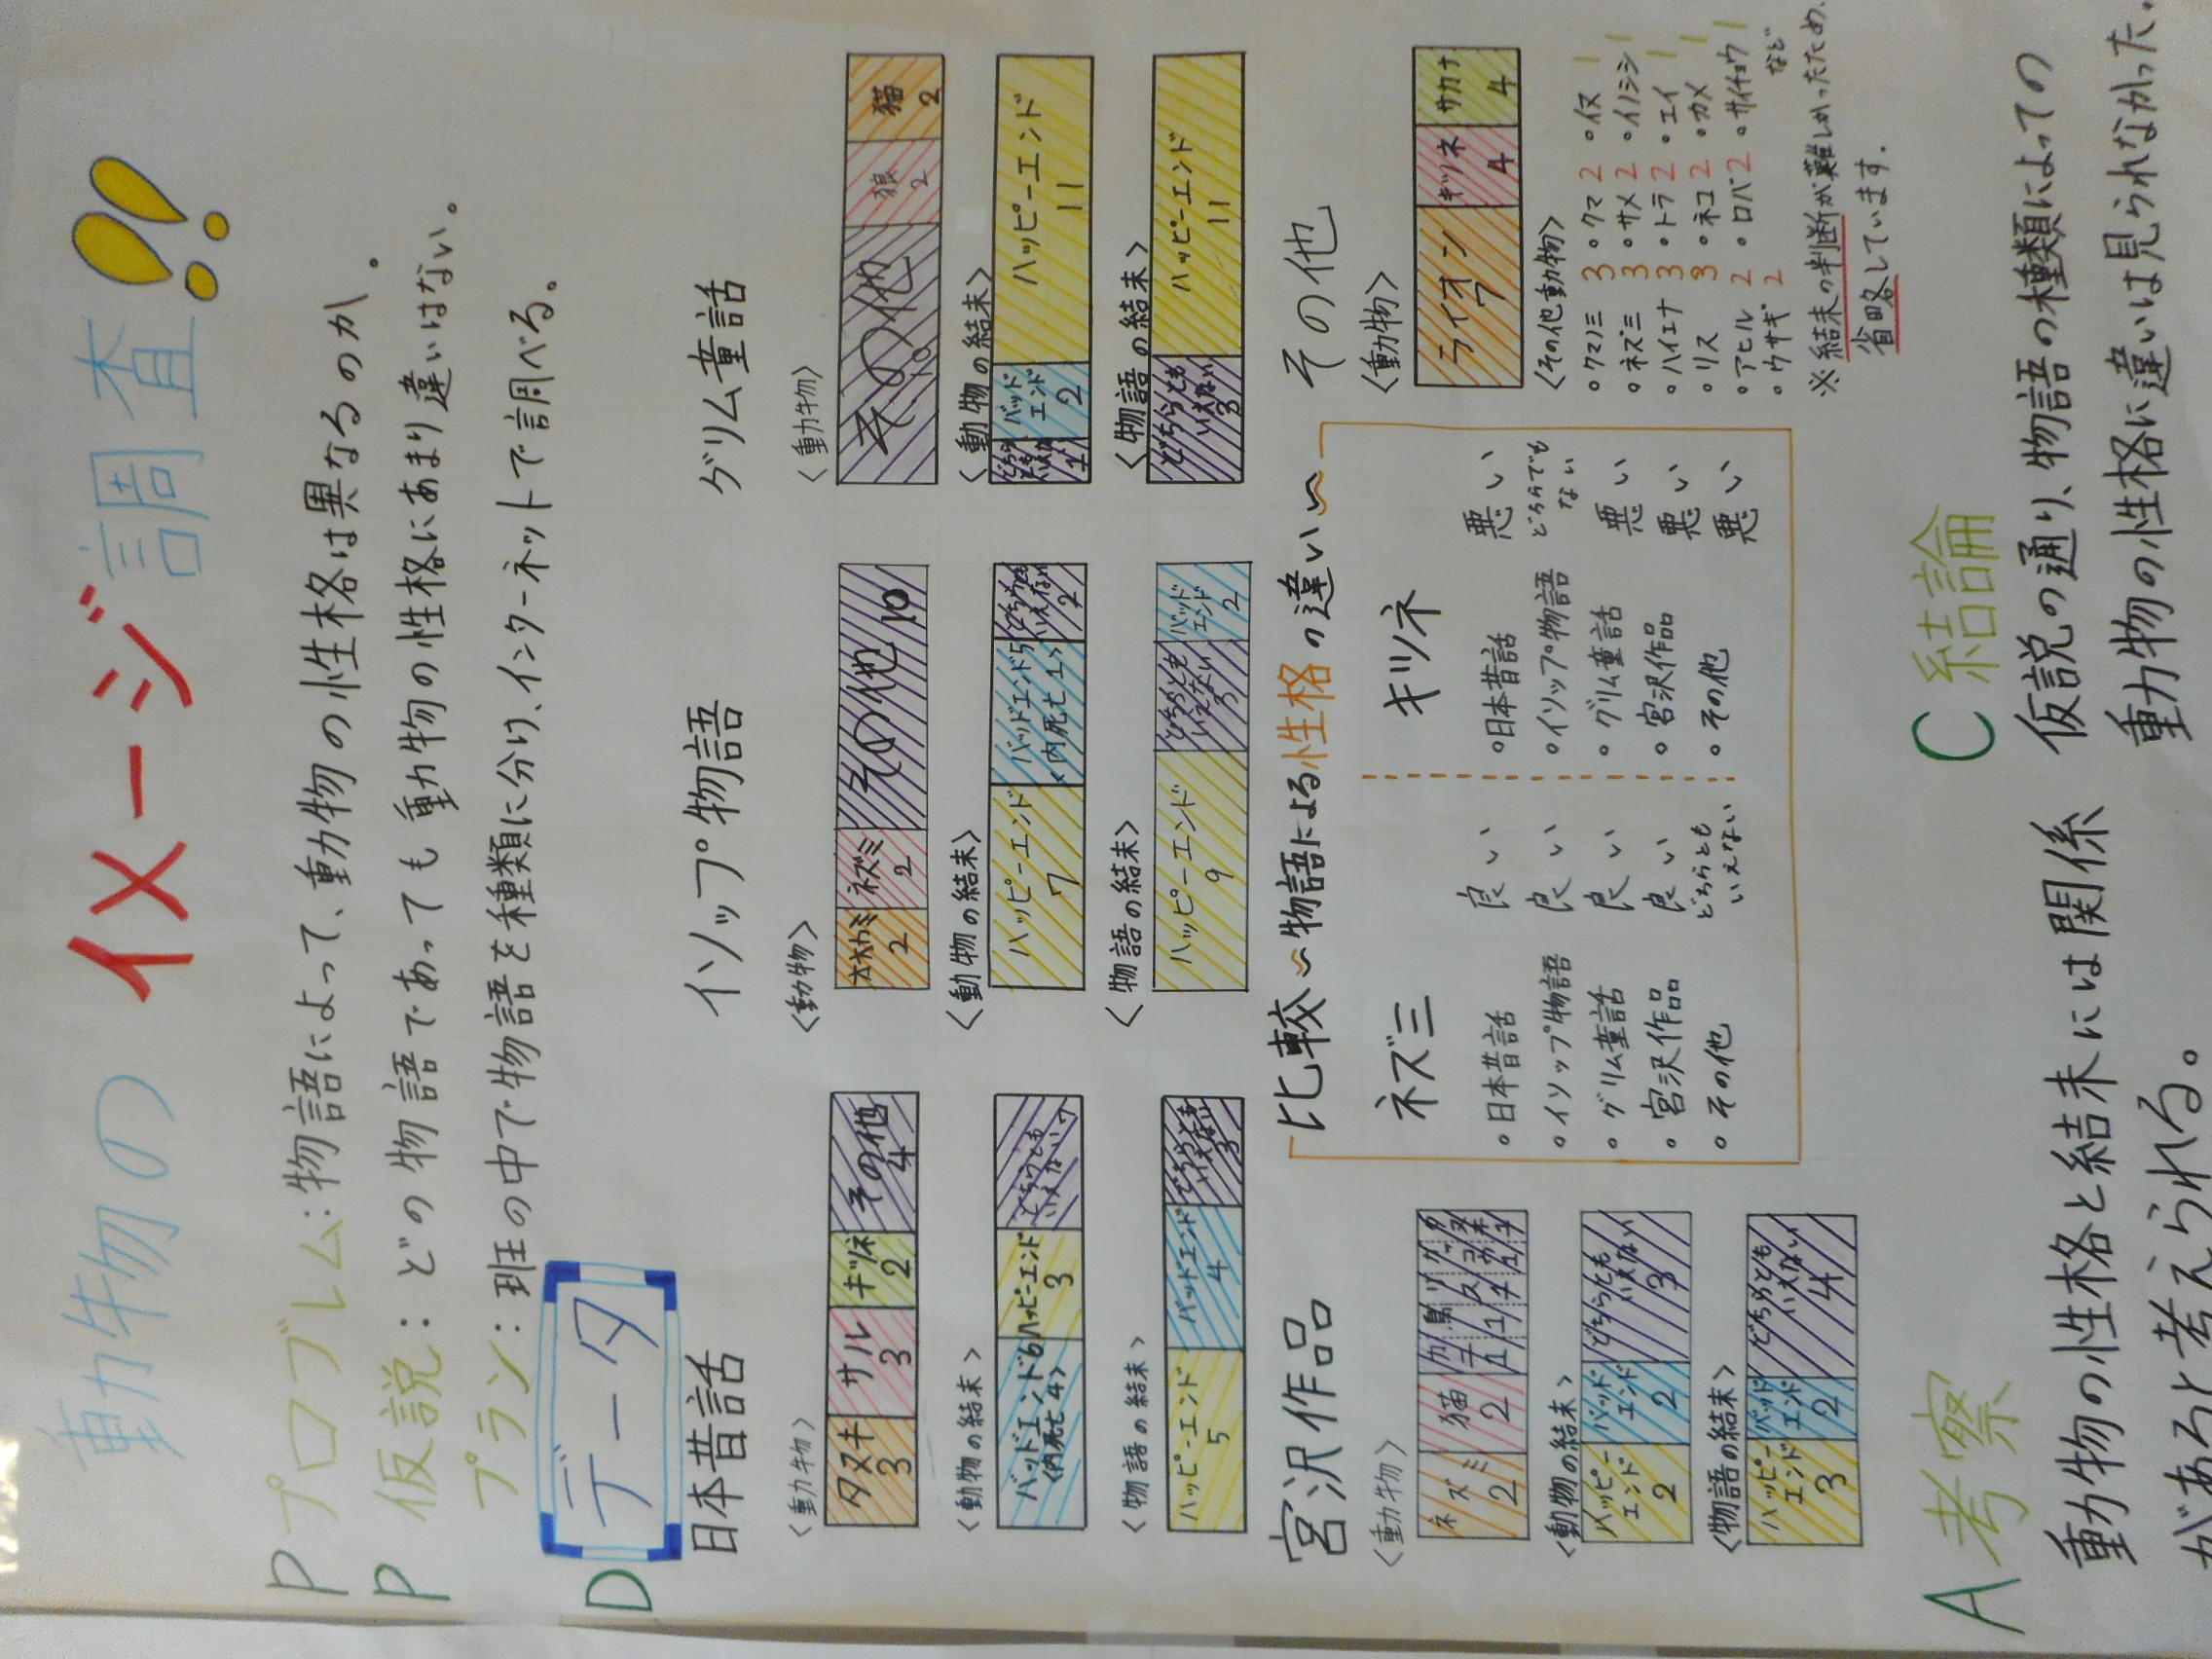 動物の イメージ調査!!
P プロブレム:物語によって、動物の性格は異なるのか。
P 仮説:どの物語であっても動物の性格にあまり違いはない。
プラン:班の中で物語を種類に分け、インターネットで調べる。
D データ
日本昔話
<動物>
タヌキ 3 サル 3 キツネ 2 その他 4
<動物の結末>
バッドエンド6 <内死亡4> ハッピーエンド 3 どちらともいえない
<物語の結末>
ハッピーエンド 5 バッドエンド 4 どちらともいえない 3
イソップ物語
<動物>
オオカミ 2 ネズミ 2 その他 10
<動物の結末>
ハッピーエンド 7 バッドエンド5 <内死亡1> どちらともいえない 2
<物語の結末>
ハッピーエンド 9 どちらともいえない 3 バッドエンド 2
グリム童話
<動物>
その他 10 狼 2 猫 2
<動物の結末>
どちらともいえない 1 バッドエンド 2 ハッピーエンド 11
<物語の結末>
どちらともいえない 3 ハッピーエンド 11
宮沢作品
<動物>
ネズミ 2 猫 2
<動物の結末>
ハッピーエンド 2 バッドエンド 2 どちらともいえない 3
<物語の結末>
ハッピーエンド 3 バッドエンド 2 どちらともいえない 4
比較~物語による性格の違い~
ネズミ
・日本昔話 良い
・イソップ物語 良い
・グリム童話 良い
・宮沢作品 良い
・その他 どちらともいえない
キツネ
・日本昔話 悪い
・イソップ物語 どちらでもない
・グリム童話 悪い
・宮沢作品 悪い
・その他 悪い
その他
<動物>
ライオン 7 キツネ 4 サカナ 4
<その他動物>
・クマノミ 3 ・クマ 2 ・イヌ 1
・ネズミ 3 ・サメ 2 ・イノシシ 1
・ハイエナ 3 ・トラ 2 ・エイ 1
・リス 3 ・ネコ 2 ・カメ 1
・アヒル 2 ・ロバ 2 ・サイチョウ 1
・ウサギ 2 など
※結末の判断が難しかったため、
省略しています。
A 考察
動物の性格と結末には関係
があると考えられる。
C 結論
仮説の通り、物語の種類によっての
動物の性格に違いは見られなかった。